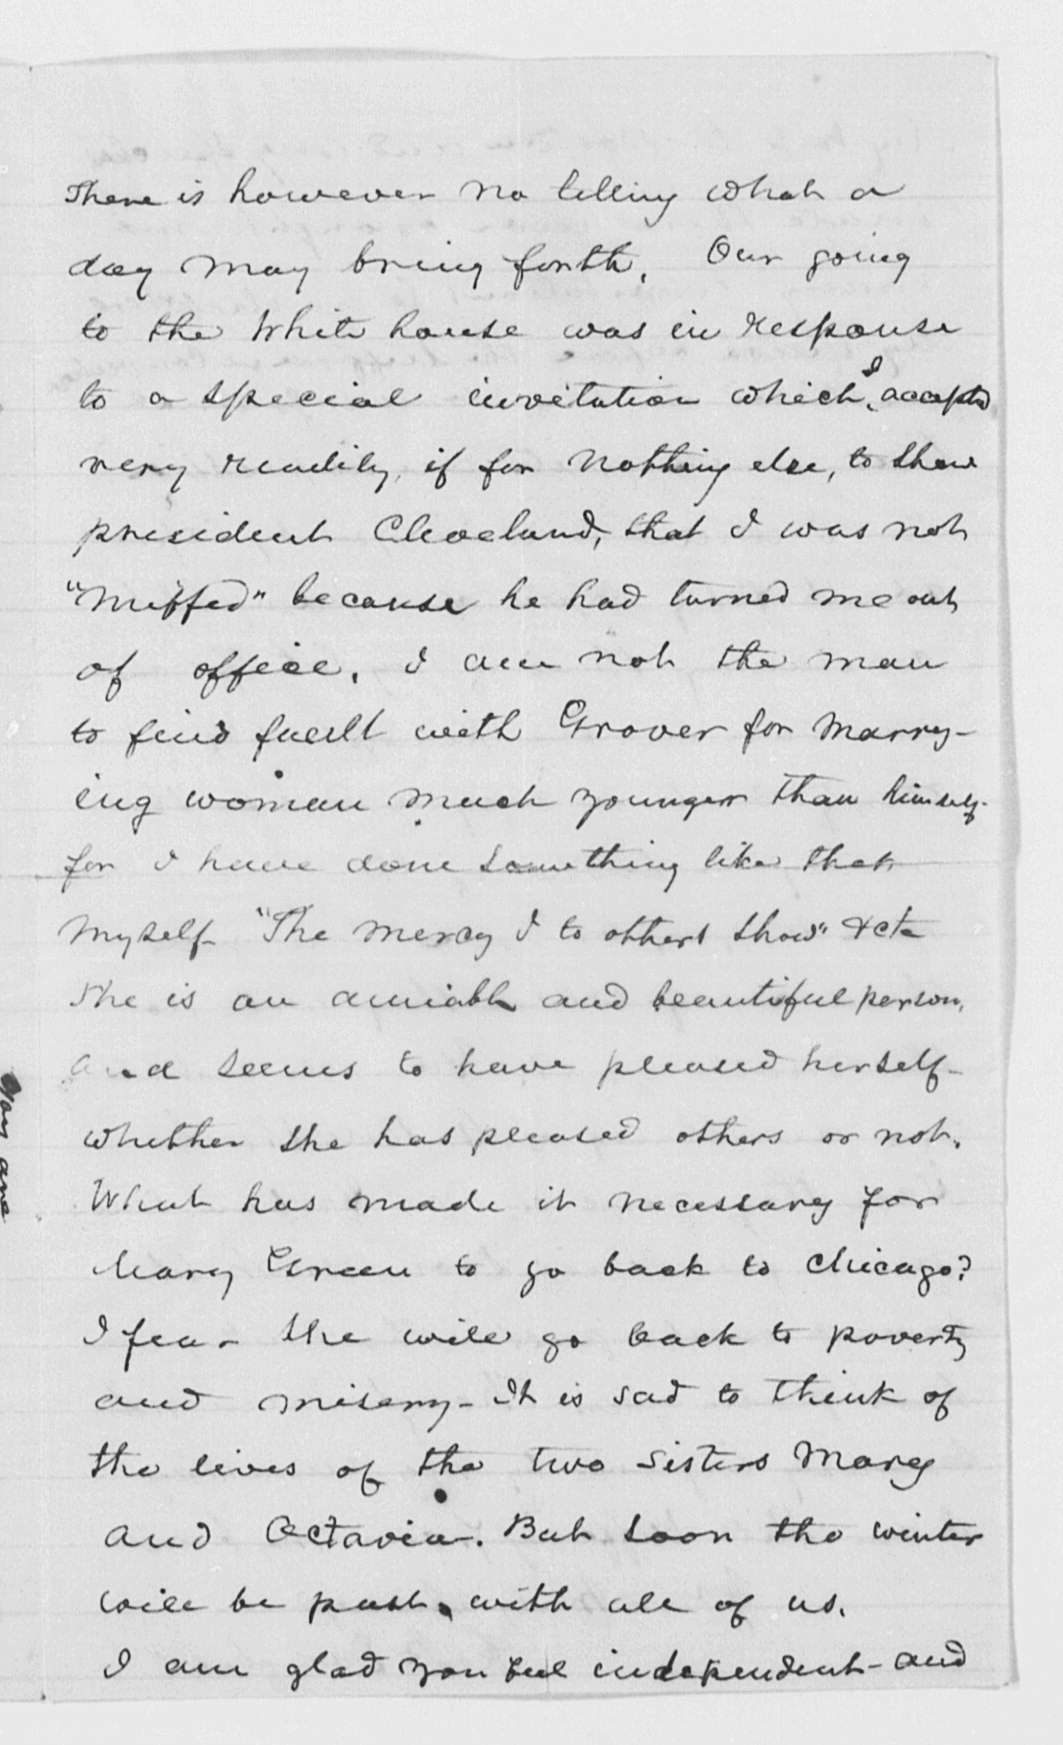 There is however no telling what a
day may bring forth. Our going
to the White house was in response
to a special invitation which I accepted
very readily, if for nothing else, to show
president Cleveland, that I was not
"Miffed" because he had turned me out
of office. I am not the man
to find fault with Grover for Marry-
ing woman much younger than himself-
for I have done something like that
myself- "The mercy I to others show" &cta
She is an amiable and beautiful person,
and seems to have pleased herself-
whether she has pleased others or not.
What has made it necessary for
Mary Green to go back to Chicago?
I fear she will go back to poverty
and misery- It is sad to think of
the lives of the two Sisters Mary
and Octavia. But soon the winter
will be past, with all of us.
I am glad you feel independent- and
You are